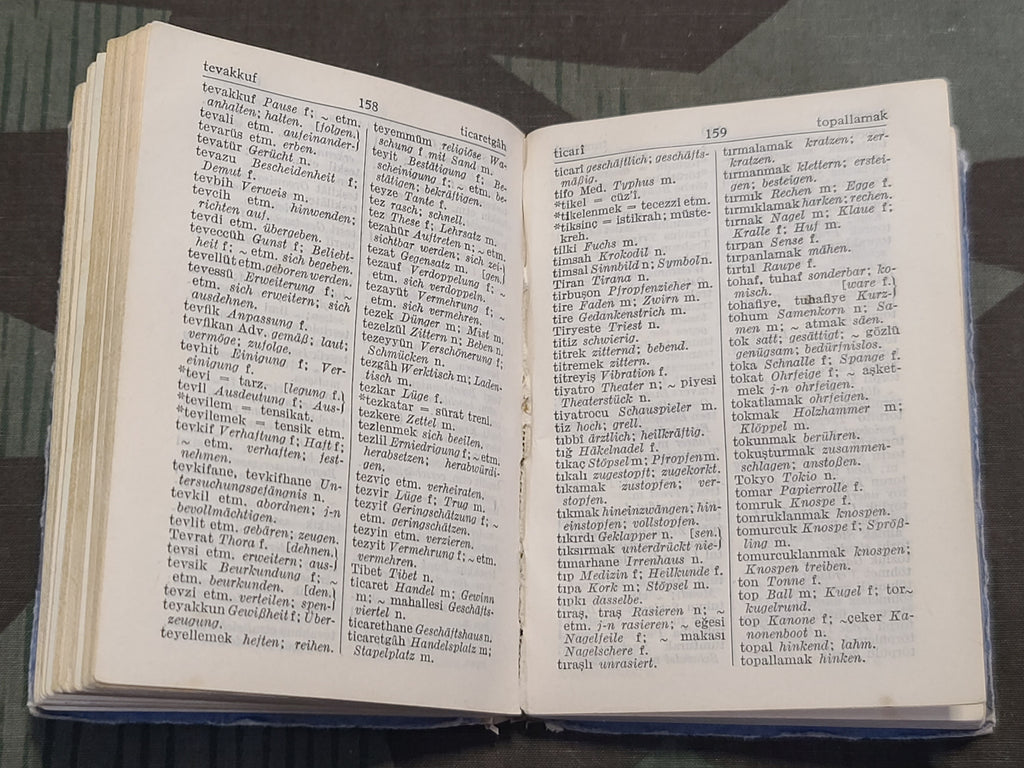 tevakkuf
158
ticaretgâh
tevakkuf Pause f; ~ etm.
anhalten; halten. [folgen.}
tevali etm. aufeinander-}
tevarüs etm. erben.
tevatür Gerücht n.
tevazu Bescheidenheit f;
Demut f.
tevbih Verweis m.
tevcih etm. hinwenden;
richten auf.
tevdi etm. übergeben.
teveccüh Gunst f; Beliebt-
heit f; ~ etm. sich begeben.
tevellüt etm. geboren werden.
tevessü Erweiterung f; ~
etm. sich erweitern; sich
ausdehnen.
tevfik Anpassung f.
tevfikan Adv. gemäß; laut;
vermöge; zufolge.
tevhit Einigung f; Ver-
einigung f.
*tevi = tarz. [legung f.}
tevil Ausdeutung f; Aus-}
*tevilem = tensikat.
*tevilemek = tensik etm.
tevkif Verhaftung f; Haft f;
~ etm. verhaften; fest-
nehmen.
tevkifane, tevkifhane Un-
tersuchungsgefängnis n.
tevkil etm. abordnen; j-n
bevollmächtigen.
tevlit etm. gebären; zeugen.
Tevrat Thora f. [dehnen.}
tevsi etm. erweitern; aus-}
tevsik Beurkundung f; ~
etm. beurkunden. [den.}
tevzi etm. verteilen; spen-}
teyakkun Gewißheit f; Über-
zeugung.
teyellemek heften; reihen.
teyemmüm religiöse Wa-
schung f mit Sand m.
teyit Bestätigung f; Be-
scheinigung f; ~ etm. be-
stätigen; bekräftigen.
teyze Tante f.
tez rasch; schnell.
tez These f; Lehrsatz m.
tezahür Auftreten n; ~ etm.
sichtbar werden; sich zei-}
tezat Gegensatz m. [gen.}
tezauf Verdoppelung f; ~
etm. sich verdoppeln.
tezayüt Vermehrung f; ~
etm. sich vermehren.
tezek Dünger m; Mist m.
tezelzül Zittern n; Beben n.
tezeyyün Verschönerung f;
Schmücken n.
tezgâh Werktisch m; Laden-
tisch m.
tezkar Lüge f.
*tezkatar = sürat treni.
tezkere Zettel m.
tezlenmek sich beeilen.
tezlil Erniedrigung f; ~ etm.
herabsetzen; herabwürdi-
gen.
tezviç etm. verheiraten.
tezvir Lüge f; Trug m.
tezyif Geringschätzung f; ~
etm. geringschätzen.
tezyin etm. verzieren.
tezyit Vermehrung f; ~ etm.
vermehren.
Tibet Tibet n.
ticaret Handel m; Gewinn
m; ~ mahallesi Geschäfts-
viertel n.
ticarethane Geschäftshaus n.
ticaretgâh Handelsplatz m;
Stapelplatz m.
ticarî
159
topallamak
ticarî geschäftlich; geschäfts-
mäßig.
tifo Med. Typhus m.
*tikel = cüz'î.
*tikelenmek = tecezzi etm.
*tiksinç = istikrah; müste-
kreh.
tilki Fuchs m.
timsah Krokodil n.
timsal Sinnbild n; Symbol n.
Tiran Tirana n.
tirbuşon Pfropfenzieher m.
tire Faden m; Zwirn m.
tire Gedankenstrich m.
Tiryeste Triest n.
titiz schwierig.
titrek zitternd; bebend.
titremek zittern.
titreyiş Vibration f.
tiyatro Theater n; ~ piyesi
Theaterstück n.
tiyatrocu Schauspieler m.
tiz hoch; grell.
tıbbî ärztlich; heilkräftig.
tığ Häkelnadel f.
tıkaç Stöpsel m; Pfropfen m.
tıkalı zugestopft; zugekorkt.
tıkamak zustopfen; ver-
stopfen.
tıkmak hineinzwängen; hin-
einstopfen; vollstopfen.
tıkırdı Geklapper n. [sen.}
tıksırmak unterdrückt nie-}
tımarhane Irrenhaus n.
tıp Medizin f; Heilkunde f.
tıpa Kork m; Stöpsel m.
tıpkı dasselbe.
tıraş, traş Rasieren n; ~
etm. j-n rasieren; ~ eğesi
Nagelfeile f; ~ makası
Nagelschere f.
tıraşlı unrasiert.
tırmalamak kratzen; zer-
kratzen.
tırmanmak klettern; erstei-
gen; besteigen.
tırmık Rechen m; Egge f.
tırmıklamak harken; rechen.
tırnak Nagel m; Klaue f;
Kralle f; Huf m.
tırpan Sense f.
tırpanlamak mähen.
tırtıl Raupe f.
tohaf, tuhaf sonderbar; ko-
misch. [ware f.}
tohafiye, tuhafiye Kurz-}
tohum Samenkorn n; Sa-
men m; ~ atmak säen.
tok satt; gesättigt; ~ gözlü
genügsam; bedürfnislos.
toka Schnalle f; Spange f.
tokat Ohrfeige f; ~ aşket-
mek j-n ohrfeigen.
tokatlamak ohrfeigen.
tokmak Holzhammer m;
Klöppel m.
tokunmak berühren.
tokuşturmak zusammen-
schlagen; anstoßen.
Tokyo Tokio n.
tomar Papierrolle f.
tomruk Knospe f.
tomruklanmak knospen.
tomurcuk Knospe f; Spröß-
ling m.
tomurcuklanmak knospen;
Knospen treiben.
ton Tonne f.
top Ball m; Kugel f; tor~
kugelrund.
top Kanone f; ~çeker Ka-
nonenboot n.
topal hinkend; lahm.
topallamak hinken.